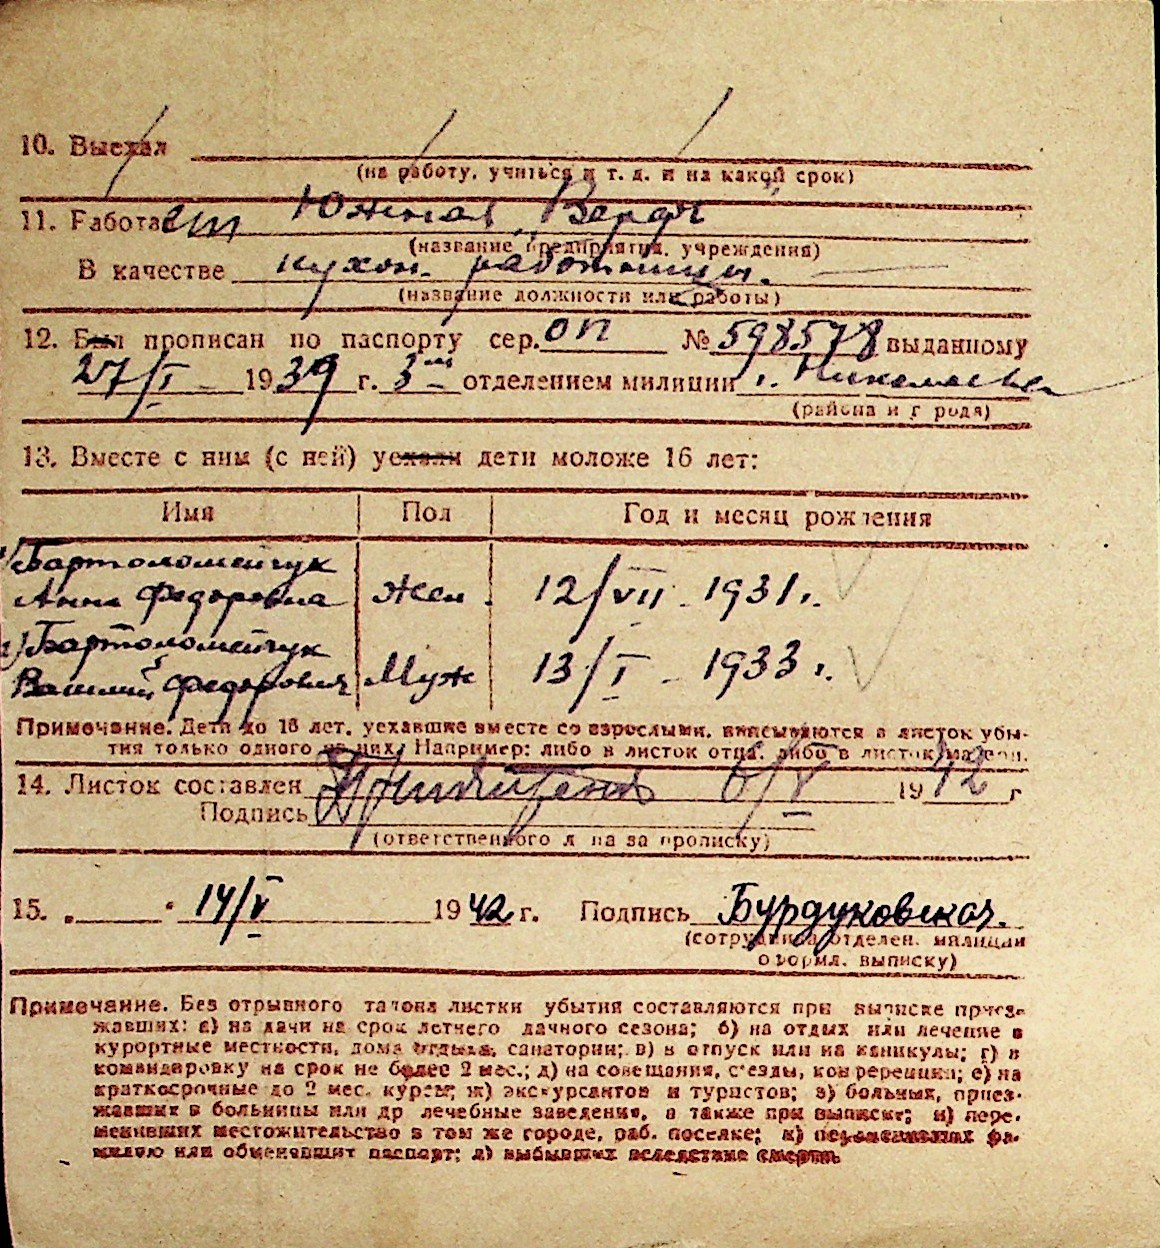 10. Выехал
(на работу, учиться и т. д. и на какой срок)
11. Работает Южная Верфь
(название предприятия, учреждения)
В качестве кухон. работницы.
(название должности или работы)
12. Был прописан по паспорту сер. ОП № 598578 выданному
27/I 1939 г. 3м отделением милиции г. Николаева
(района и города)
13. Вместе с ним (с ней) уехали дети моложе 16 лет:
Имя Пол Год и месяц рождения
1) Бартоломейчук
Анна Федоровна Жен. 12/VII - 1931 г.
2) Бартоломейчук
Василий Федорович Муж 13/I - 1933 г.
Примечание. Дети до 16 лет, уехавшие вместе со взрослыми, вписываются в листок убы-
тия только одного из них. Например: либо в листок отца, либо в листок матери.
14. Листок составлен 6/V 1942 г
Подпись
(ответственного л на за прописку)
15. „ " 14/V 1942 г. Подпись Бурдуковская.
(сотрудника отделен. милиции
оформл. выписку)
Примечание. Без отрывного талона листки убытия составляются при выписке приез-
жавших: а) на дачи на срок летнего дачного сезона; б) на отдых или лечение в
курортные местности, дома отдыха, санатории; в) в отпуск или на каникулы; г) в
командировку на срок не более 2 мес.; д) на совещания, с'езды, конференции; е) на
краткосрочные до 2 мес. курсы; ж) экскурсантов и туристов; з) больных, приез-
жавших в больницы или др лечебные заведения, а также при выписке; и) пере-
менивших местожительство в том же городе, раб. поселке; к) переменивших фа-
милию или обменявших паспорт; л) выбывших вследствие смерти